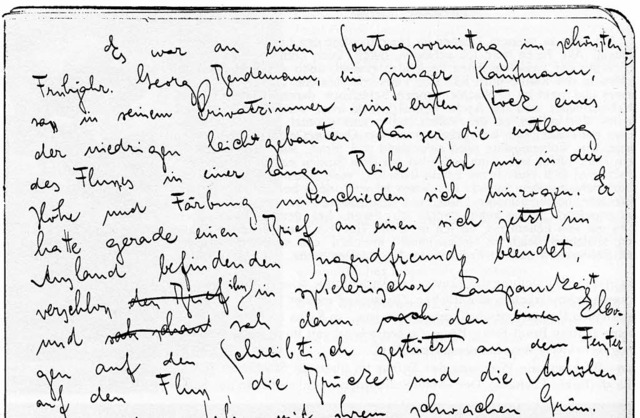 Es war an einem Sontagvormittag im schönsten
Frühjahr. Georg Bendemann, ein junger Kaufmann,
sass in seinem Privatzimmer im ersten Stock eines
der niedrigen leichtgebauten Häuser, die entlang
des Flusses in einer langen Reihe fast nur in der
Höhe und Färbung unterschieden sich hinzogen. Er
hatte gerade einen Brief an einen sich jetzt im
Ausland befindenden Jugendfreund beendet,
verschloss den Brief ihn in spielerischer Langsamkeit
und sah dann den Elbo-
gen auf den Schreibtisch gestützt aus dem Fenster
auf den Fluss, die Brücke und die Anhöhen
mit ihrem schwachen Grün.